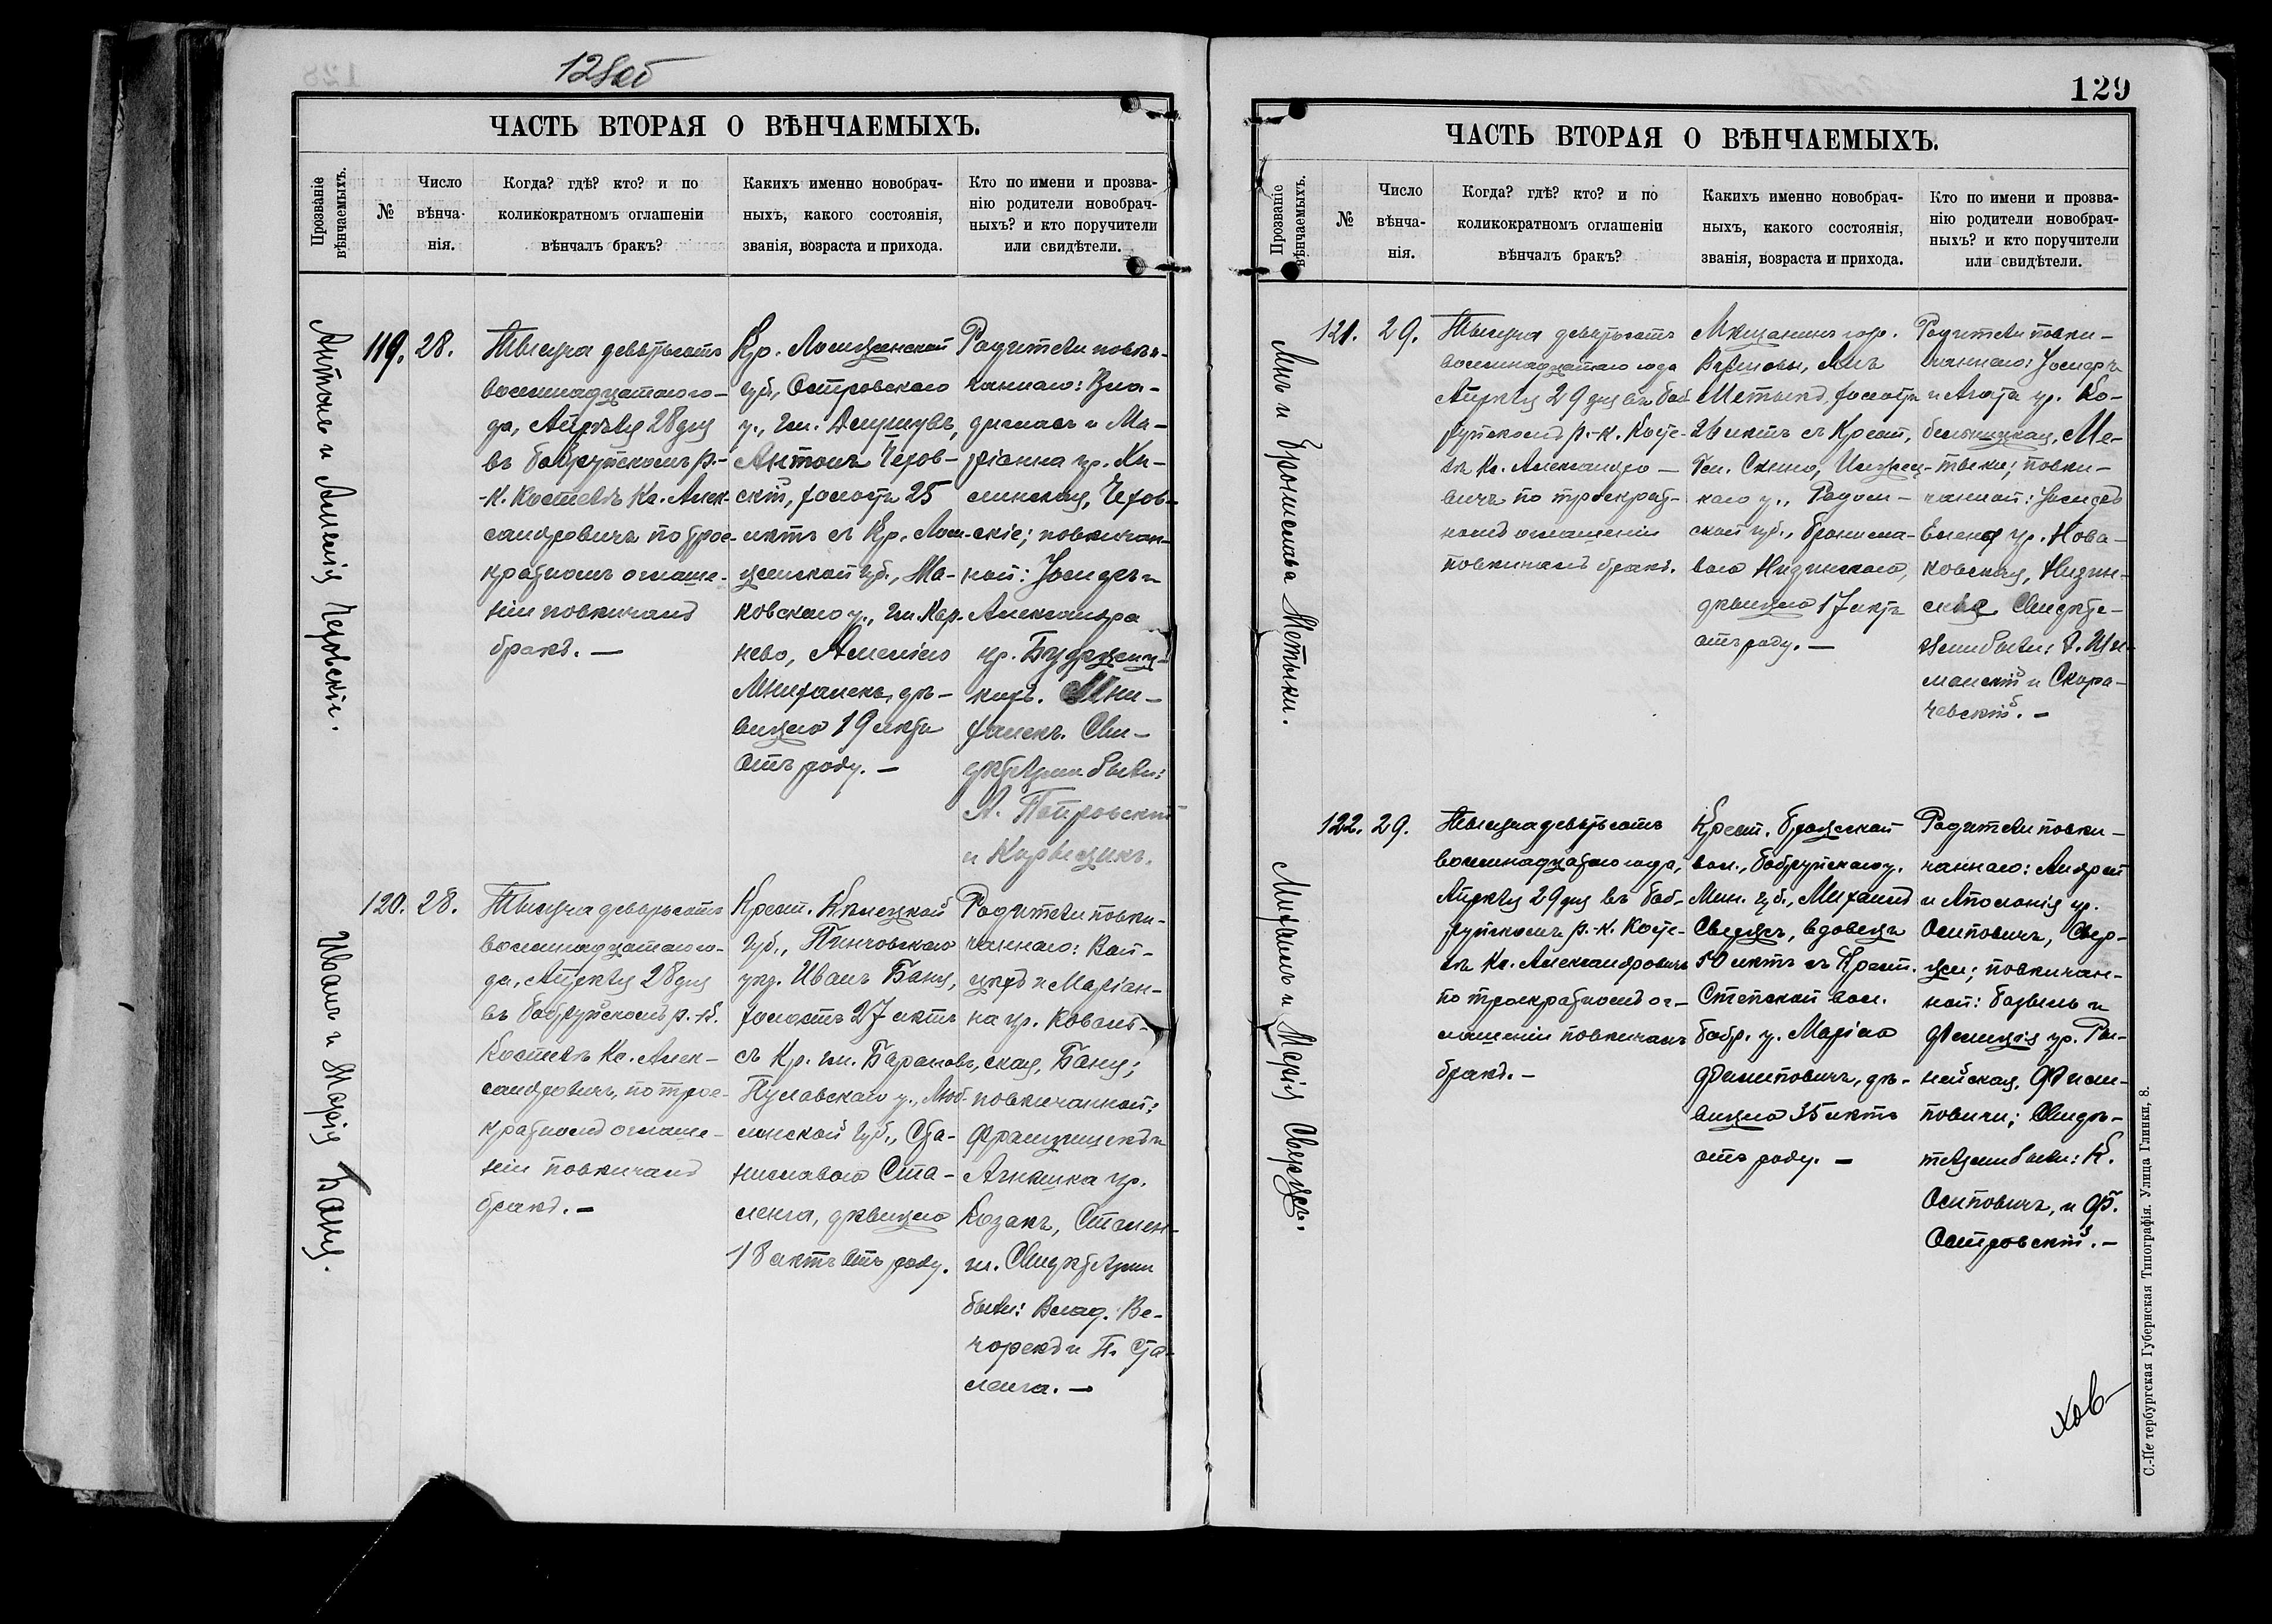 128об
ЧАСТЬ ВТОРАЯ О ВѢНЧАЕМЫХЪ.
Прозваніе вѣнчаемыхъ.
№
Число
вѣнча-
нія.
Когда? гдѣ? кто? и по
коликократномъ оглашеніи
вѣнчалъ бракъ?
Какихъ именно новобрач-
ныхъ, какого состоянія,
званія, возраста и прихода.
Кто по имени и прозва-
нію родители новобрач-
ныхъ? и кто поручители
или свидѣтели.
Антонъ и Амелія Чеховскіе.
119. 28.
Тысяча девятьсотъ
восемнадцатаго го-
да, Апрѣля 28 дня
въ Бобруйскомъ р.-
-к. Костелѣ Кс. Алек-
сандровичъ по трое-
кратномъ оглаше-
ніи повѣнчалъ
бракъ. —
Кр. Ломжинской
губ., Островскаго
у., гм.
Антонъ Чехов-
скій, холостъ 25
лѣтъ съ Кр. Лом-
жинской губ., Ма-
ковскаго у., гм. Кар-
нево, Амелію
Михалекъ, дѣ-
вицею 19 лѣтъ
отъ роду. —
Родители повѣн-
чаннаго: Вла-
диславъ и Ма-
ріанна ур.
Чехов-
скіе; повѣнчан-
ной: Іосифъ и
Александра
ур.
Ми-
халекъ. Сви-
дѣтелями были:
А. Петровскій
и
120. 28.
Иванъ и Марія Баня.
Тысяча девятьсотъ
восемнадцатаго го-
да, Апрѣля 28 дня
въ Бобруйскомъ р.-к.
Костелѣ Кс. Алек-
сандровичъ, по трое-
кратномъ оглаше-
ніи повѣнчалъ
бракъ. —
Крест. Кѣлецкой
губ., Пинчовскаго
уѣз. Иванъ Баня,
холостъ 27 лѣтъ
съ Кр. гм. Барановъ,
Пулавскаго у., Люб-
линской губ., Ста-
ниславою Ста-
ленга, дѣвицею
18 лѣтъ отъ роду.
Родители повѣн-
чаннаго: Вой-
цѣхъ и Маріан-
на ур. Коваль-
ская, Баня;
повѣнчанной:
Францишекъ и
Агнешка ур.
Козакъ, Стален-
ги. Свидѣтелями
были: Влад. Ве-
чорекъ и П. Ста-
ленга. —
129
ЧАСТЬ ВТОРАЯ О ВѢНЧАЕМЫХЪ.
Прозваніе вѣнчаемыхъ.
№
Число
вѣнча-
нія.
Когда? гдѣ? кто? и по
коликократномъ оглашеніи
вѣнчалъ бракъ?
Какихъ именно новобрач-
ныхъ, какого состоянія,
званія, возраста и прихода.
Кто по имени и прозва-
нію родители новобрач-
ныхъ? и кто поручители
или свидѣтели.
Янъ и Брониславa Метыки.
121. 29.
Тысяча девятьсотъ
восемнадцатаго года
Апрѣля 29 дня въ Боб-
руйскомъ р.-к. Косте-
лѣ Кс. Александро-
вичъ по троекрат-
номъ оглашеніи
повѣнчалъ бракъ.
Мѣщанинъ гор.
Варшавы, Янъ
Метыка, холостъ
26 лѣтъ съ Крест.
Гм. Скшино, Илжец-
каго у., Радом-
ской губ., Бронисла-
вою Низинскою,
дѣвицею 17 лѣтъ
отъ роду. —
Родители повѣн-
чаннаго: Іосифъ
и Агата ур. Ко-
быльницкая, Ме-
тыки; повѣн-
чанной: Іосифъ
Елена ур. Нова-
ковская, Низин-
скіе. Свидѣте-
лями были: А. Ши-
манскій и Скора-
чевскій. —
122. 29.
Михаилъ и Марія Сверщъ.
Тысяча девятьсотъ
восемнадцатаго года,
Апрѣля 29 дня въ Боб-
руйскомъ р.-к. Косте-
лѣ Кс. Александровичъ
по троекратномъ ог-
лашеніи повѣнчалъ
бракъ. —
Крест. Брожской
вол., Бобруйскаго у.
Мин. губ., Михаилъ
Сверщъ, вдовецъ
50 лѣтъ съ Крест.
Степской вол.
Бобр. у. Маріею
Филиповичъ, дѣ-
вицею 35 лѣтъ
отъ роду. —
Родители повѣн-
чаннаго: Андрей
и Аполонія ур.
Осиповичъ, Свер-
щи; повѣнчан-
ной: Базыль и
Фелиція ур. Ры-
нейская, Фили-
повичи; Свидѣ-
телями были: К.
Осиповичъ, и Ф.
Островскій. —
С.-Петербургская Губернская Типографія. Улица Глинки, 8.